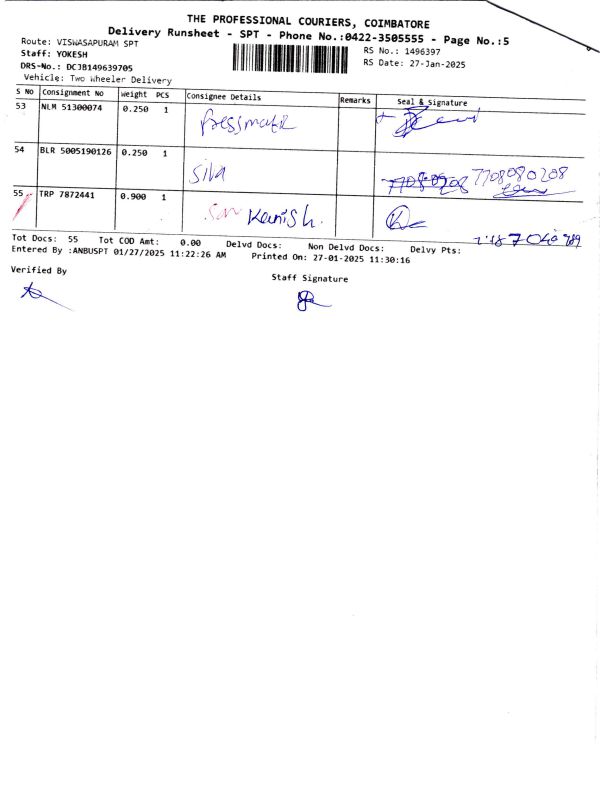 THE PROFESSIONAL COURIERS, COIMBATORE
Delivery Runsheet - SPT - Phone No.:0422-3505555 - Page No.:5
Route: VISWASAPURAM SPT
Staff: YOKESH
DRS-No.: DCJB149639705
Vehicle: Two Wheeler Delivery
RS No.: 1496397
RS Date: 27-Jan-2025
S No Consignment No Weight PCS Consignee Details Remarks Seal & Signature
53 NLM 51300074 0.250 1 Pressmatic
54 BLR 5005190126 0.250 1 Siva 7708080208
55 TRP 7872441 0.900 1 Kanish.
Tot Docs: 55 Tot COD Amt: 0.00 Delvd Docs: Non Delvd Docs: Delvy Pts:
Entered By :ANBUSPT 01/27/2025 11:22:26 AM Printed On: 27-01-2025 11:30:16
Verified By
Staff Signature